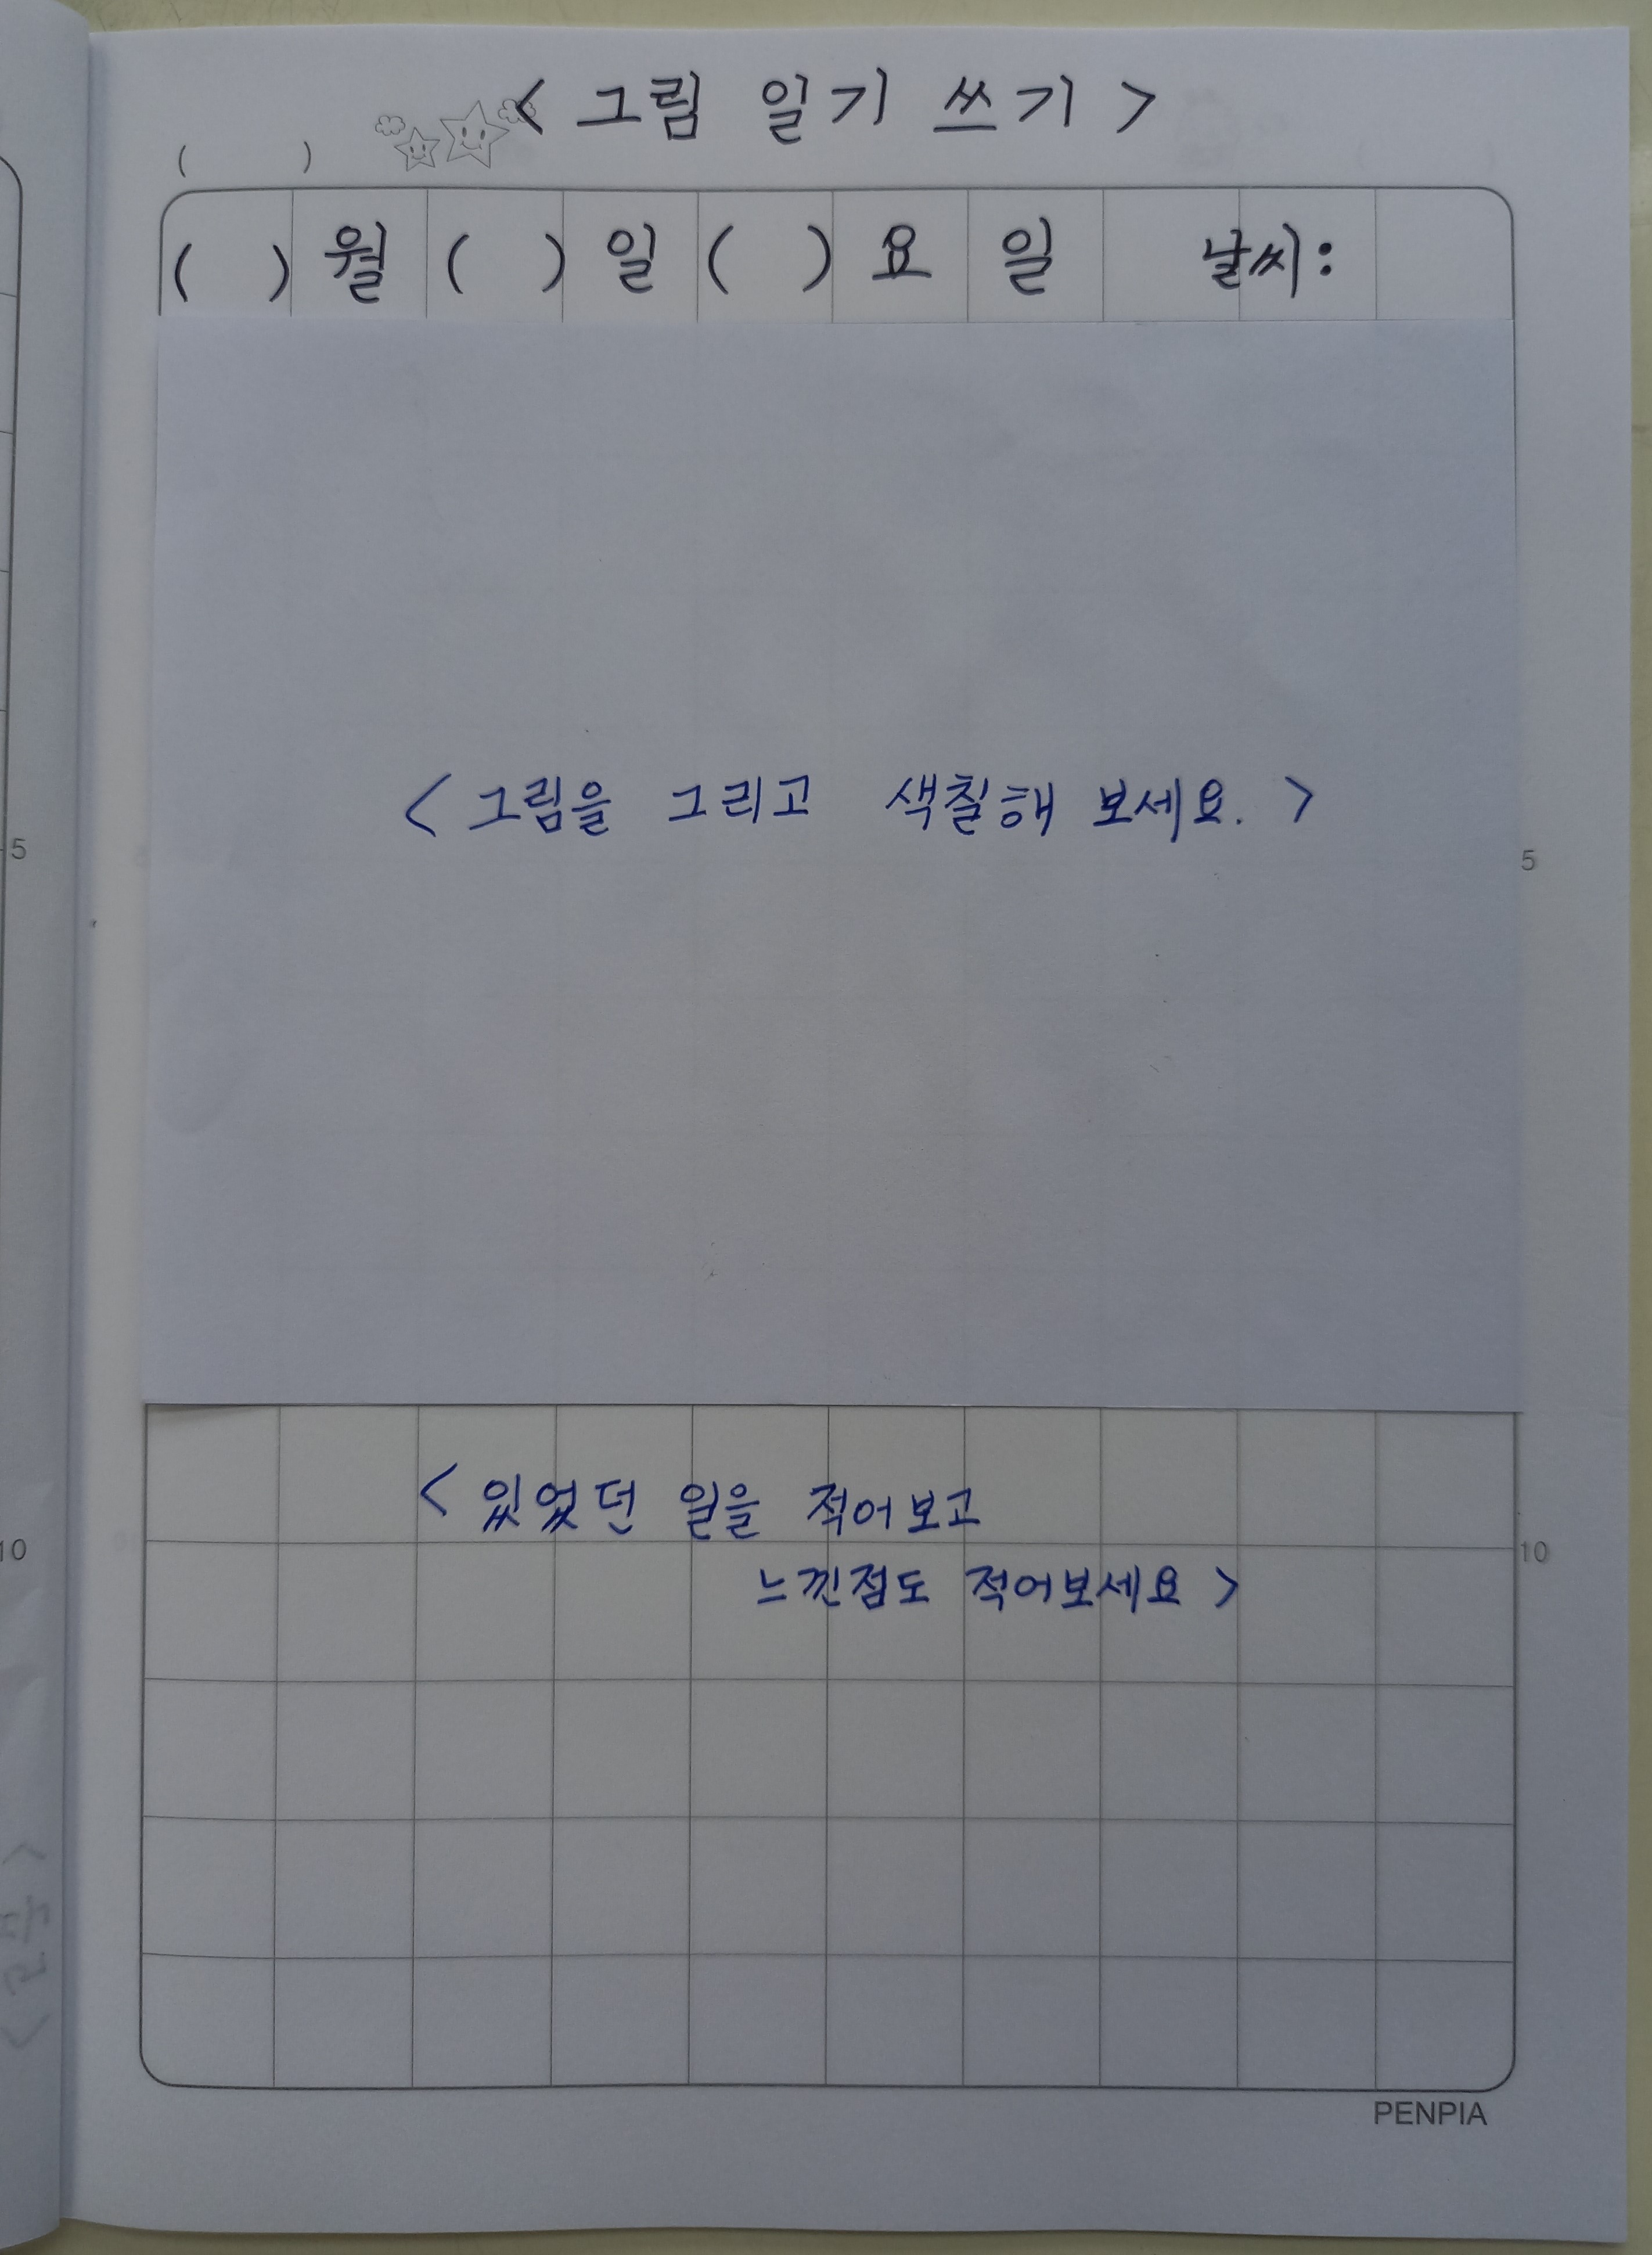 < 그림 일기 쓰기 >
( )
( ) 월 ( ) 일 ( ) 요 일 날씨:
< 그림을 그리고 색칠해 보세요. >
5
5
< 있었던 일을 적어보고
느낀점도 적어보세요 >
10
10
PENPIA